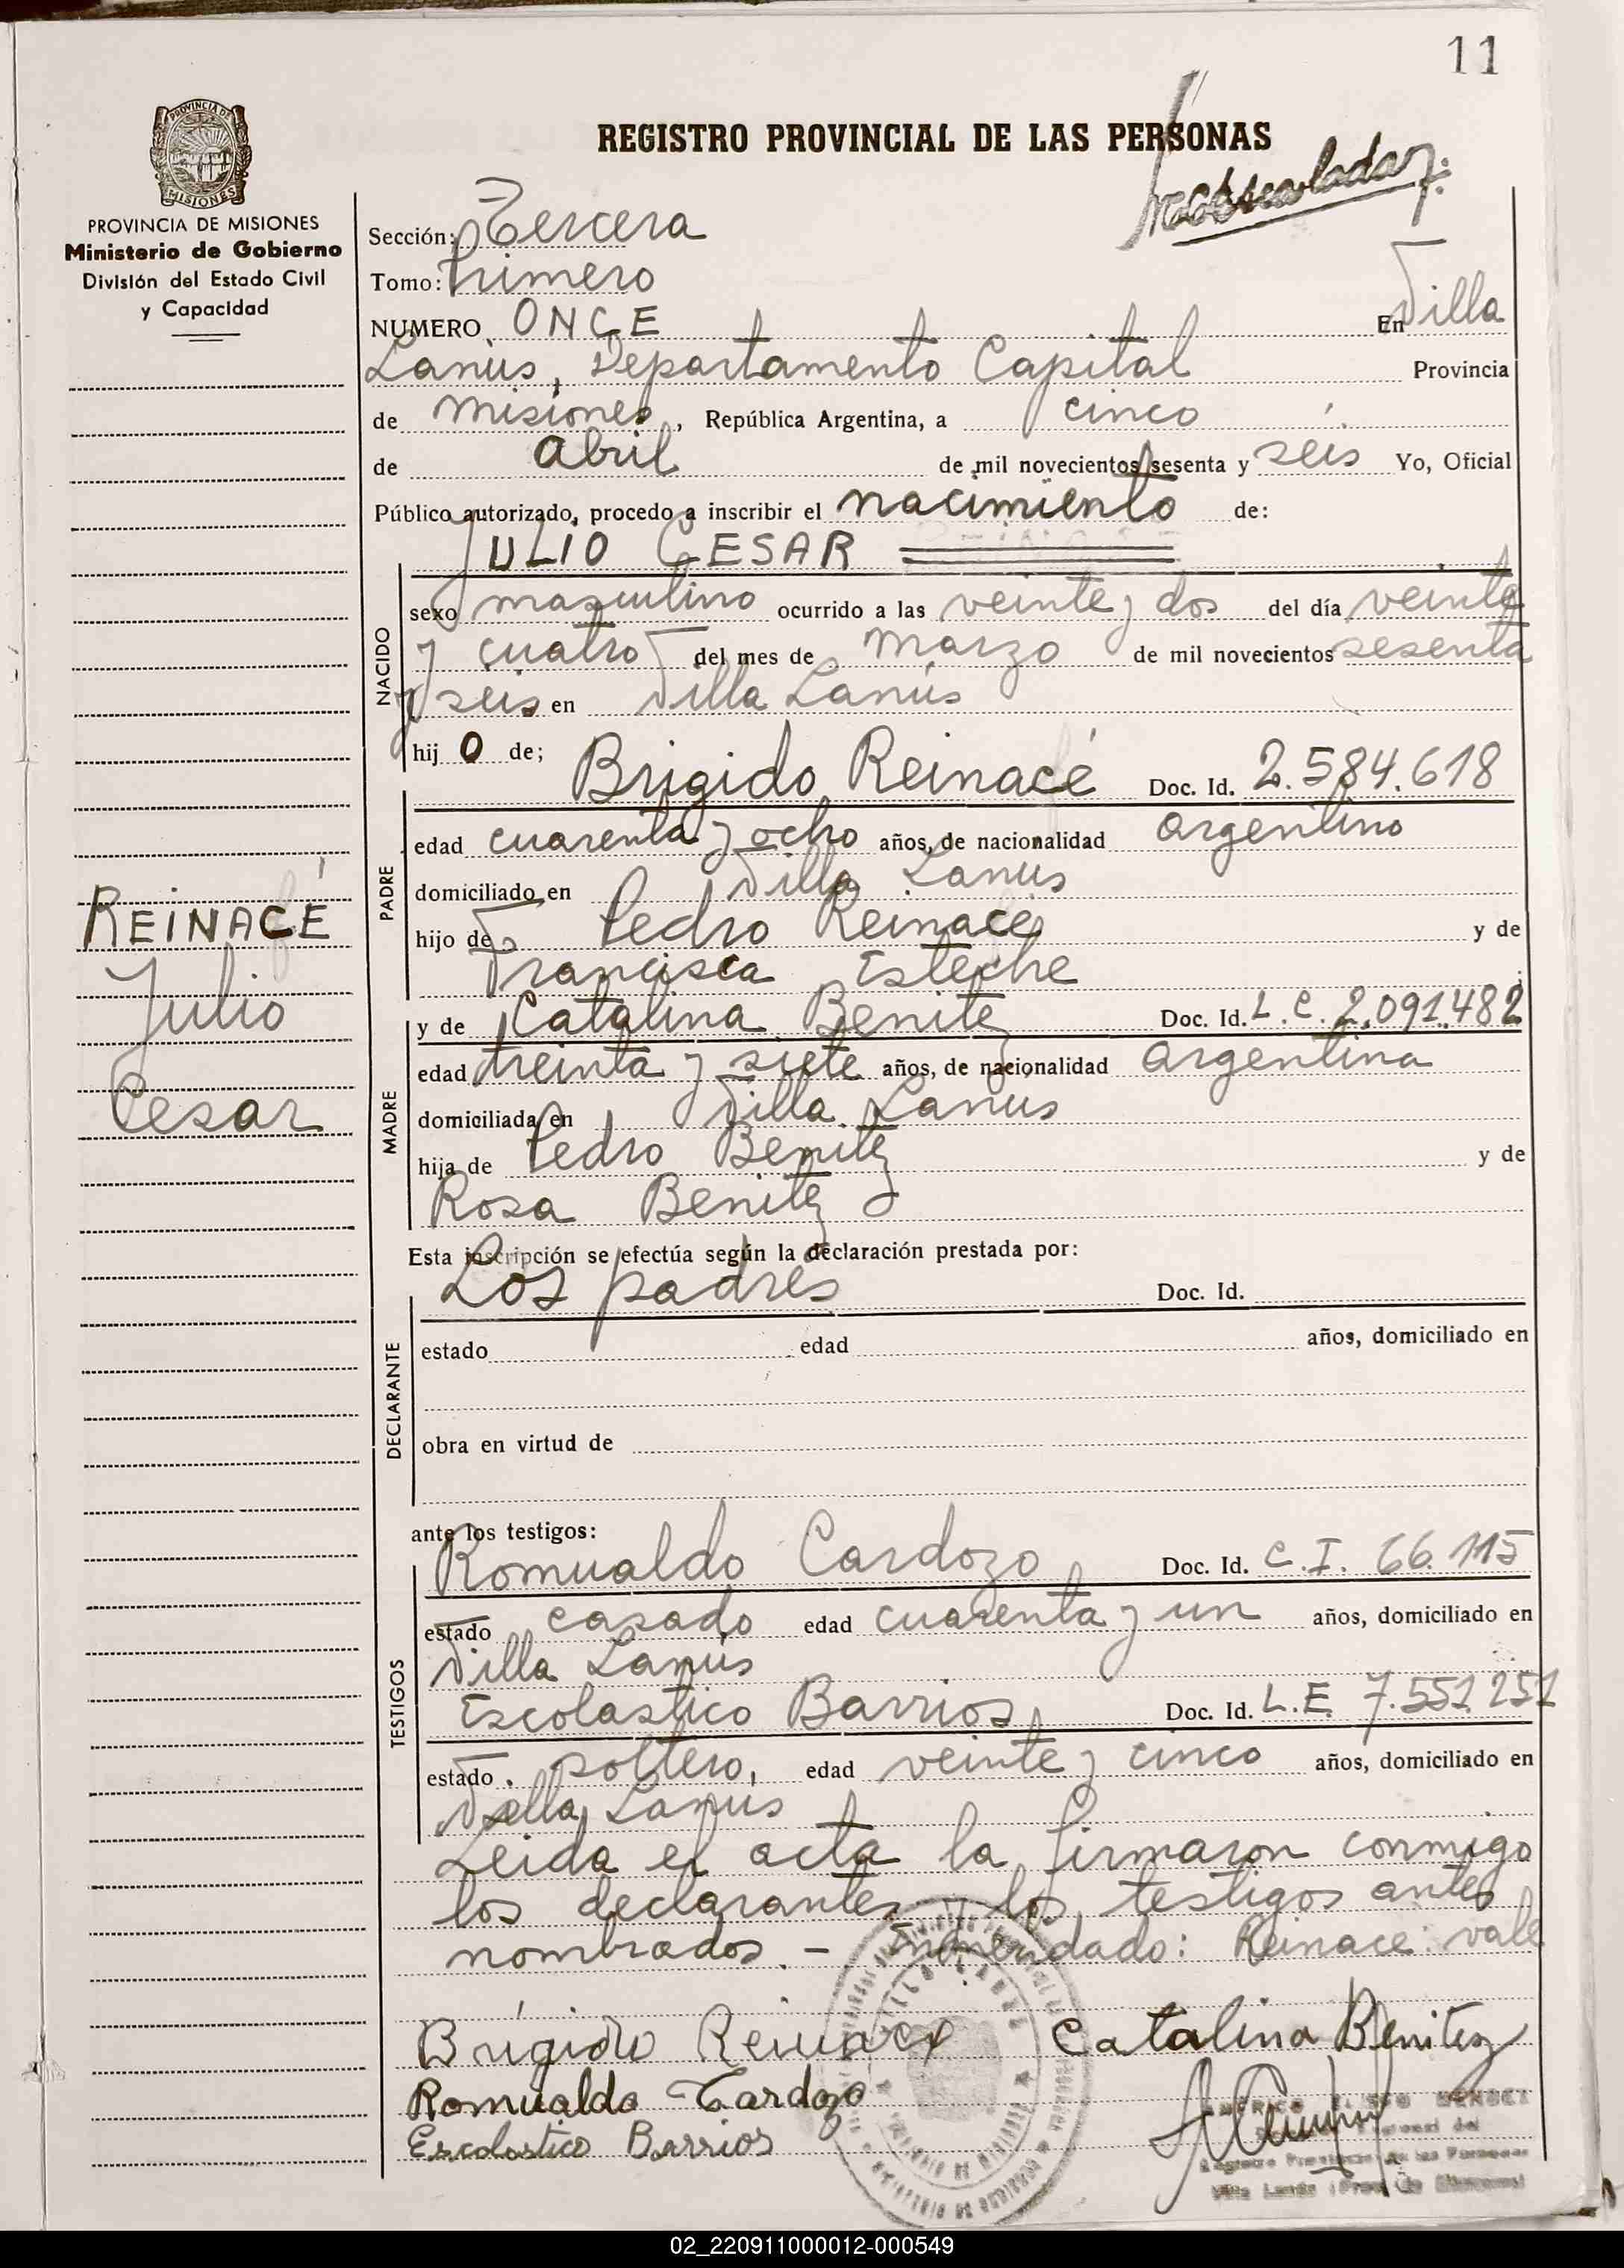 11
REGISTRO PROVINCIAL DE LAS PERSONAS
PROVINCIA DE
MISIONES
PROVINCIA DE MISIONES
Ministerio de Gobierno
División del Estado Civil
y Capacidad
Sección: Tercera
Tomo: Primero
NUMERO ONCE En Villa
Lanús, Departamento Capital Provincia
de Misiones, República Argentina, a cinco
de Abril de mil novecientos sesenta y seis Yo, Oficial
Público autorizado, procedo a inscribir el nacimiento de:
JULIO CESAR
NACIDO
sexo masculino ocurrido a las veinte y dos del día veinte
y cuatro del mes de Marzo de mil novecientos sesenta
y seis en Villa Lanús
hij o de; Brigido Reinacé Doc. Id. 2.584.618
PADRE
edad cuarenta y ocho años, de nacionalidad argentino
domiciliado en Villa Lanus
hijo de Pedro Reinacé y de
Francisca Esteche
REINACÉ
Julio
Cesar
MADRE
y de Catalina Benitez Doc. Id. L.C. 2.091.482
edad treinta y siete años, de nacionalidad argentina
domiciliada en Villa Lanus
hija de Pedro Benitez y de
Rosa Benitez
Esta inscripción se efectúa según la declaración prestada por:
DECLARANTE
Los padres Doc. Id.
estado edad años, domiciliado en
obra en virtud de
ante los testigos:
TESTIGOS
Romualdo Cardozo Doc. Id. C.I. 66.115
estado casado edad cuarenta y un años, domiciliado en
Villa Lanús
Escolastico Barrios Doc. Id. L.E. 7.551.251
estado soltero, edad veinte y cinco años, domiciliado en
Villa Lanus
Leida el acta la firmaron conmigo
los declarantes y los testigos antes
nombrados. - Enmendado: Reinace: vale
Brígido Reinacé Catalina Benitez
Romualdo Cardozo
Escolastico Barrios
Registro Provincial de las Personas
Villa Lanús (Prov. de Misiones)
02_220911000012-000549